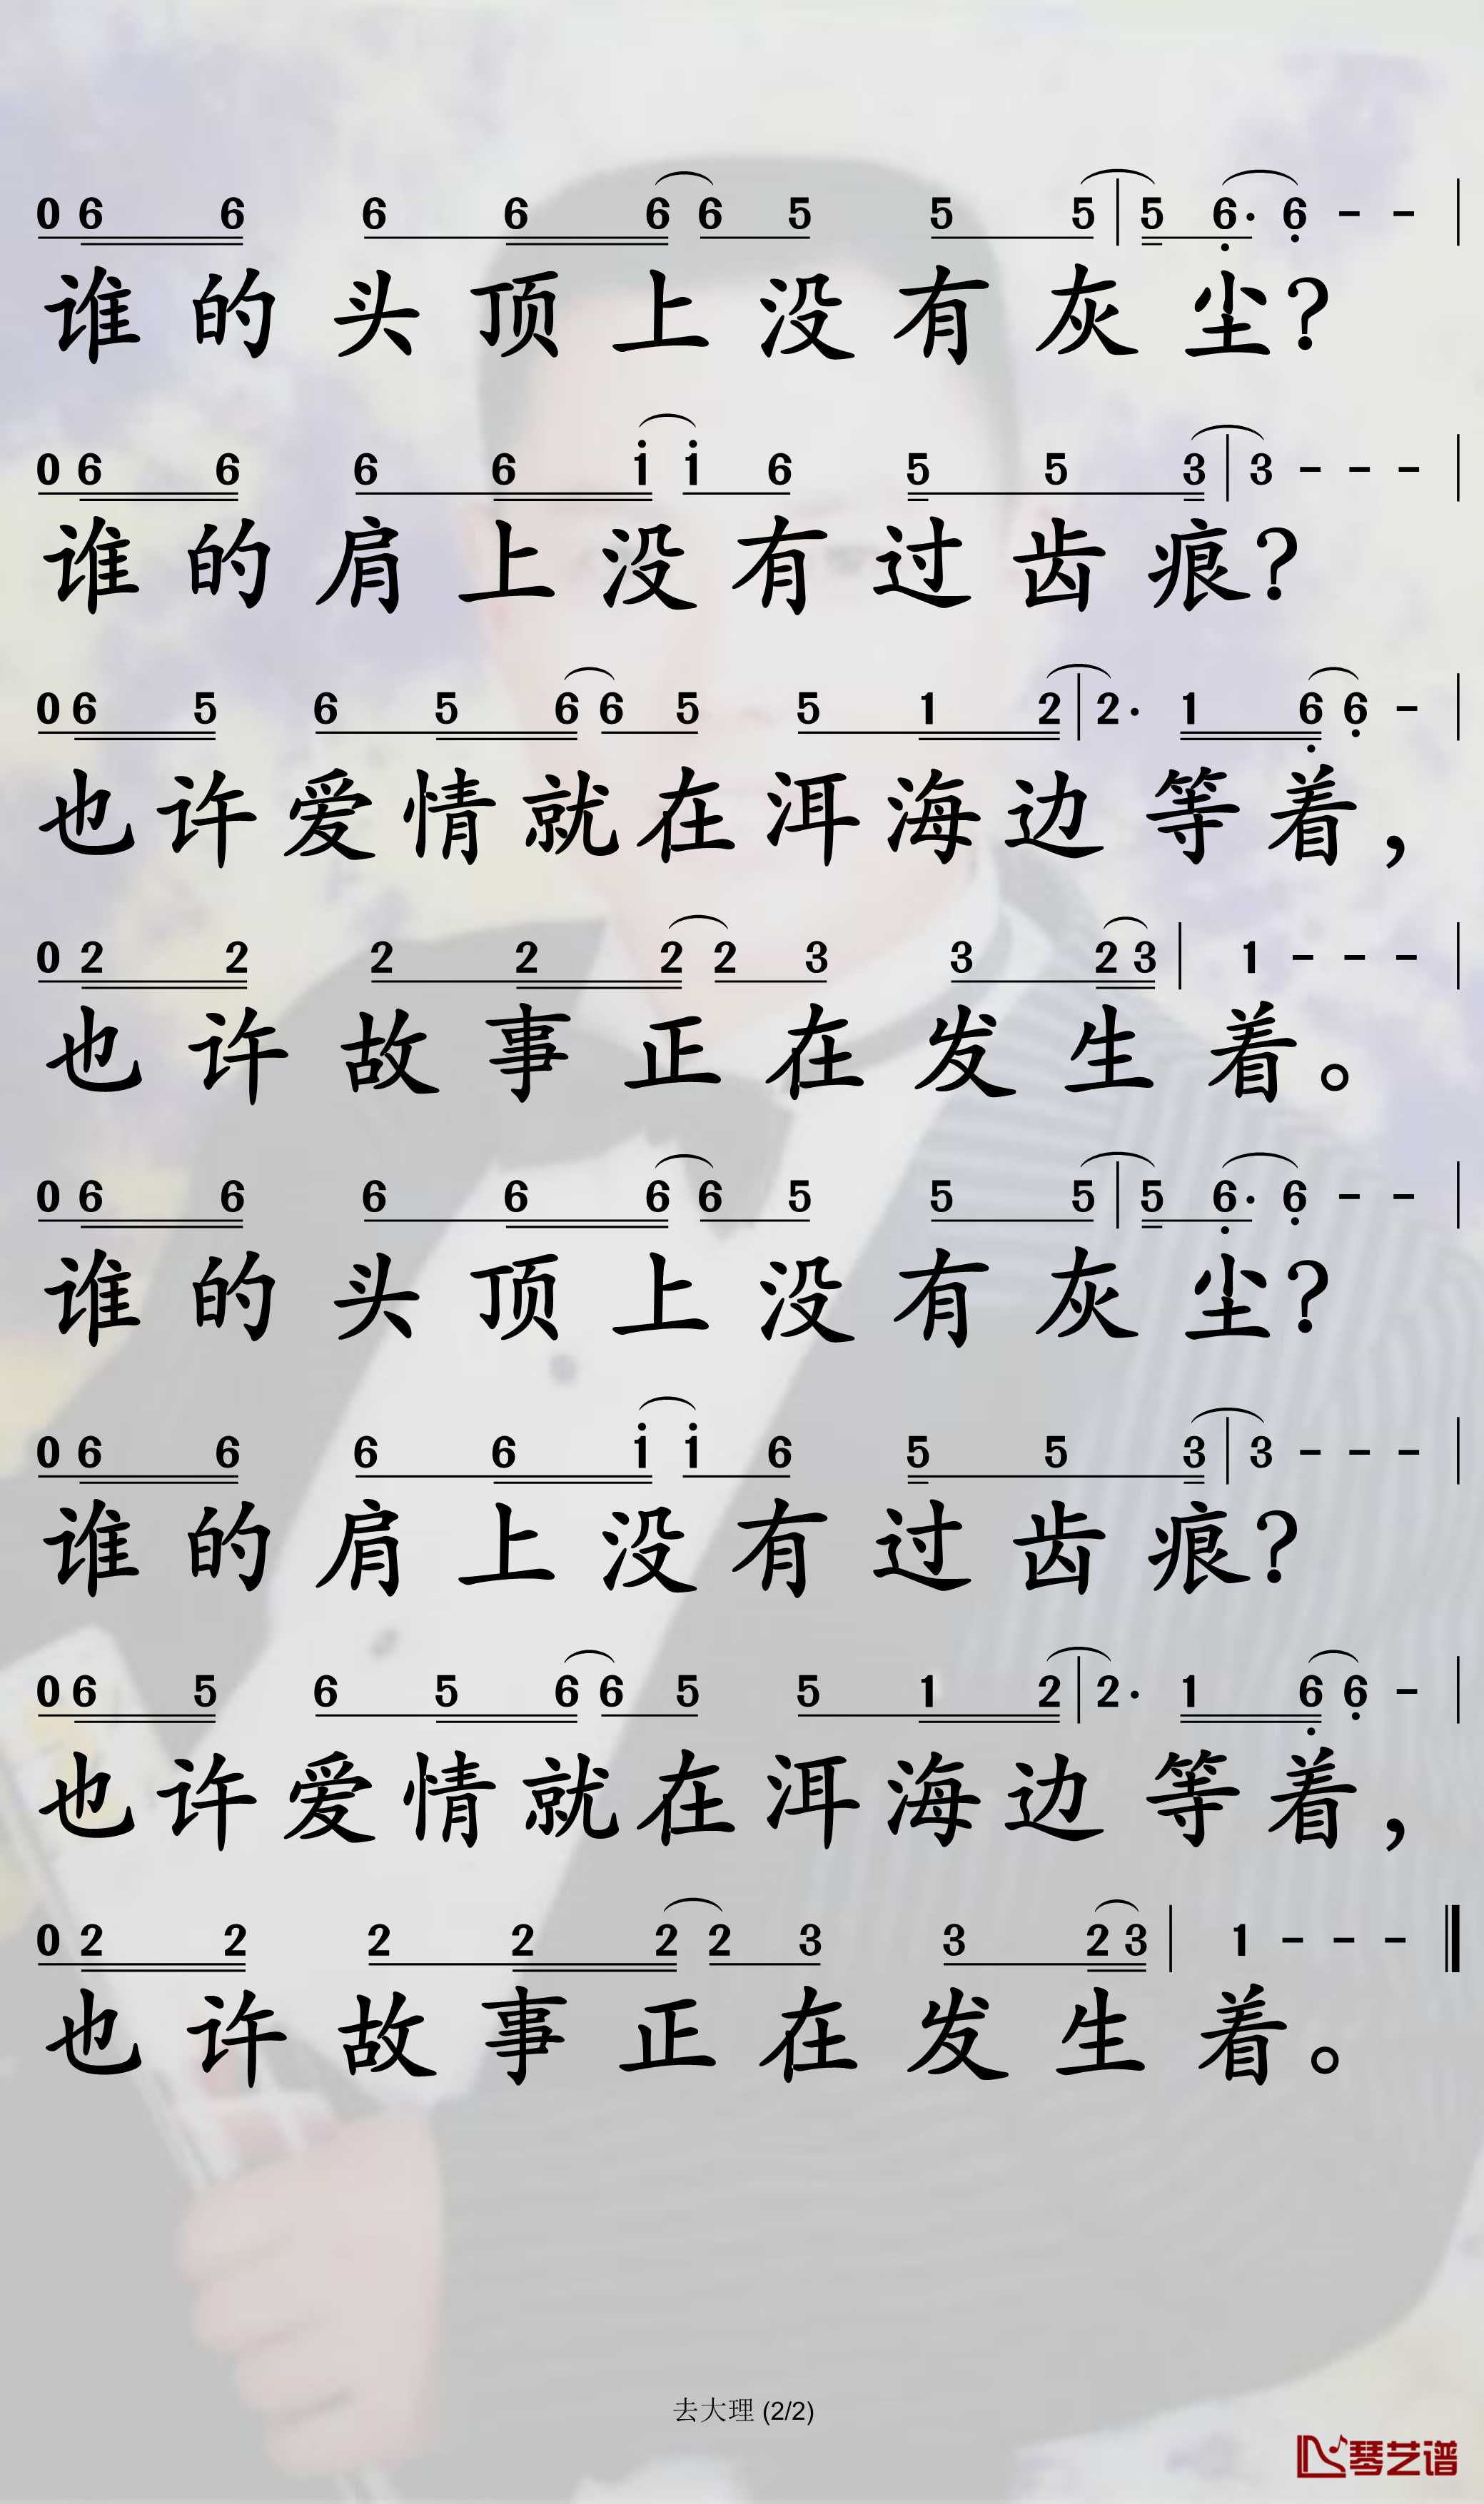 0 6 6 6 6 6 6 5 5 5 | 5 6· 6 - - |
谁的头顶上没有灰尘?
0 6 6 6 6 i i 6 5 5 3 | 3 - - - |
谁的肩上没有过齿痕?
0 6 5 6 5 6 6 5 5 1 2 | 2· 1 6 6 - |
也许爱情就在洱海边等着，
0 2 2 2 2 2 2 3 3 2 3 | 1 - - - |
也许故事正在发生着。
0 6 6 6 6 6 6 5 5 5 | 5 6· 6 - - |
谁的头顶上没有灰尘?
0 6 6 6 6 i i 6 5 5 3 | 3 - - - |
谁的肩上没有过齿痕?
0 6 5 6 5 6 6 5 5 1 2 | 2· 1 6 6 - |
也许爱情就在洱海边等着，
0 2 2 2 2 2 2 3 3 2 3 | 1 - - - ‖
也许故事正在发生着。
去大理 (2/2)
琴艺谱